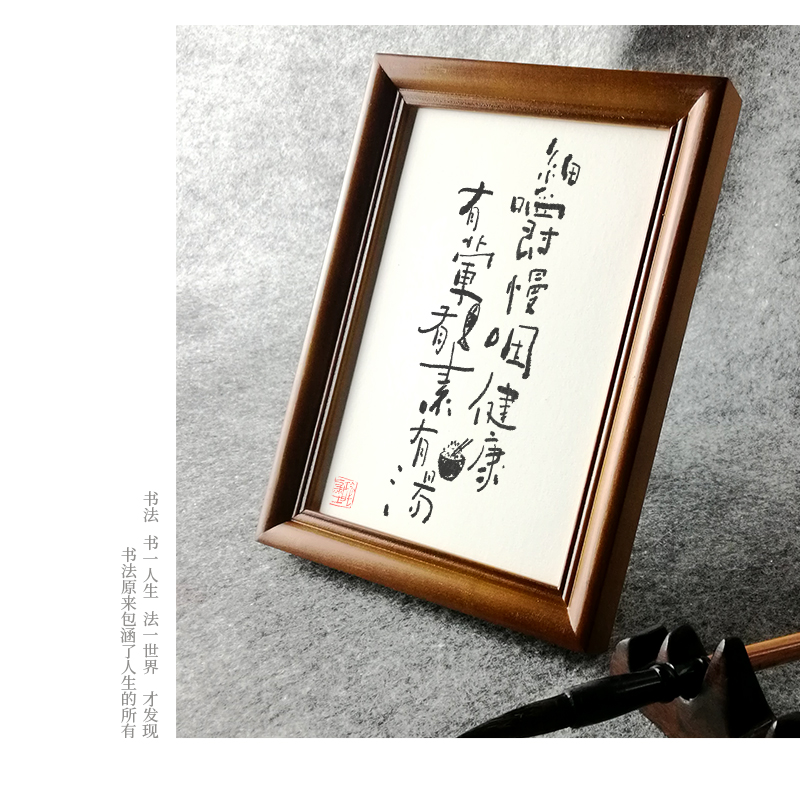 細嚼慢咽健康
有葷有素有湯
书法 书一人生 法一世界 才发现
书法原来包涵了人生的所有